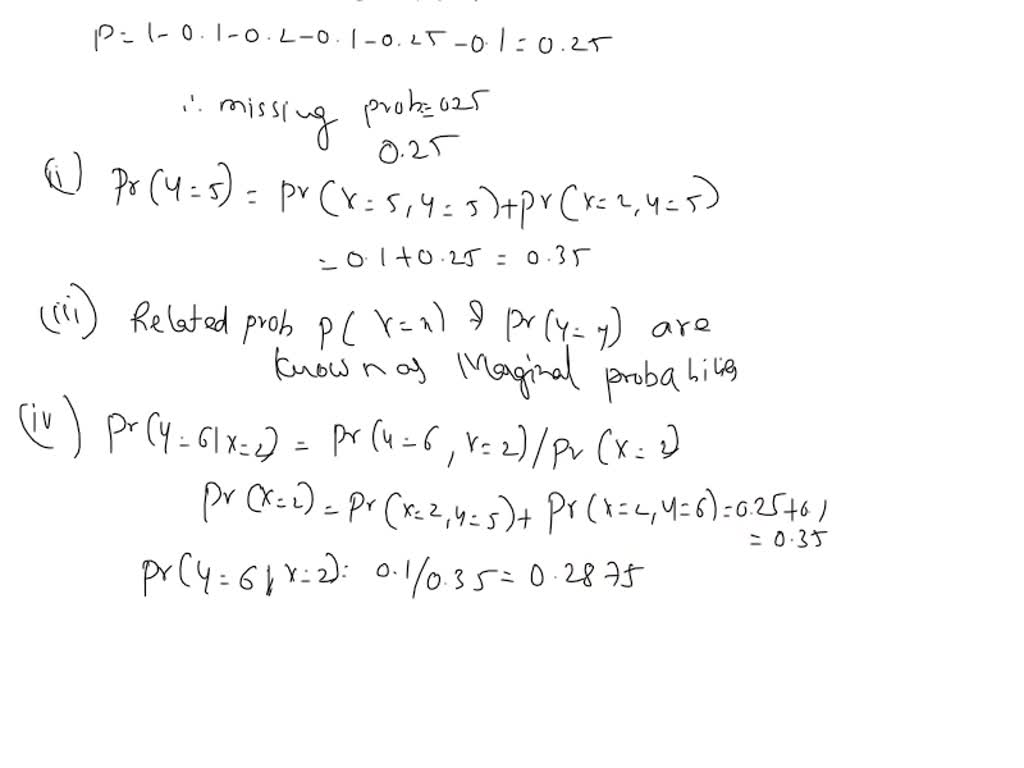 P = 1 - 0.1 - 0.2 - 0.1 - 0.25 - 0.1 = 0.25
∴ missing prob = 025
0.25
(ii) Pr(Y=5) = Pr(X=5, Y=5) + Pr(X=2, Y=5)
= 0.1 + 0.25 = 0.35
(iii) Related prob P(X=x) & Pr(Y=y) are
known as Marginal probabilities
(iv) Pr(Y=6|X=2) = Pr(Y=6, X=2)/Pr(X=2)
Pr(X=2) = Pr(X=2, Y=5) + Pr(X=2, Y=6) = 0.25 + 0.1
= 0.35
Pr(Y=6|X=2): 0.1/0.35 = 0.2875